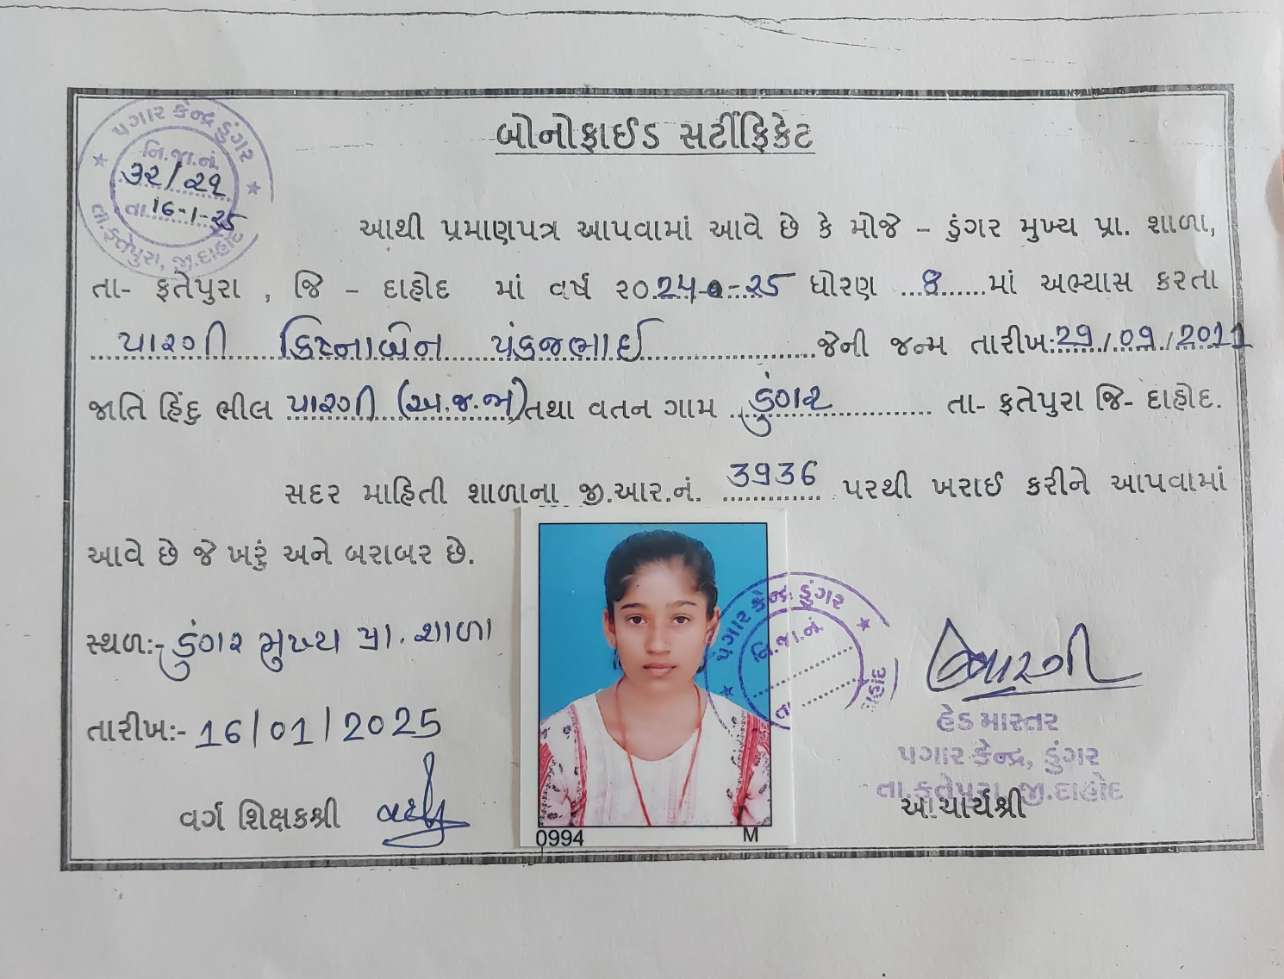 બોનોફાઈડ સર્ટીફિકેટ
પગાર કેન્દ્ર ડુંગર
નિ.જા.નં.
૩૨/૨૧
તા.16-1-25
તા.ફતેપુરા, જી.દાહોદ
આથી પ્રમાણપત્ર આપવામાં આવે છે કે મોજે - ડુંગર મુખ્ય પ્રા. શાળા,
તા- ફતેપુરા , જિ - દાહોદ માં વર્ષ ૨૦24-25 ધોરણ 8 માં અભ્યાસ કરતા
પારગી ક્રિષ્નાબેન પંકજભાઈ જેની જન્મ તારીખ:29/09/2011
જાતિ હિંદુ ભીલ પારગી (અ.જ.જા) તથા વતન ગામ ડુંગર તા- ફતેપુરા જિ- દાહોદ.
સદર માહિતી શાળાના જી.આર.નં. 3936 પરથી ખરાઈ કરીને આપવામાં
આવે છે જે ખરું અને બરાબર છે.
પગાર કેન્દ્ર ડુંગર
નિ.જા.નં
તા.
દાહોદ
સ્થળ:- ડુંગર મુખ્ય પ્રા. શાળા
તારીખ:- 16/01/2025
હેડ માસ્તર
પગાર કેન્દ્ર, ડુંગર
તા.ફતેપુરા, જી.દાહોદ
વર્ગ શિક્ષકશ્રી
આચાર્યશ્રી
0994 M